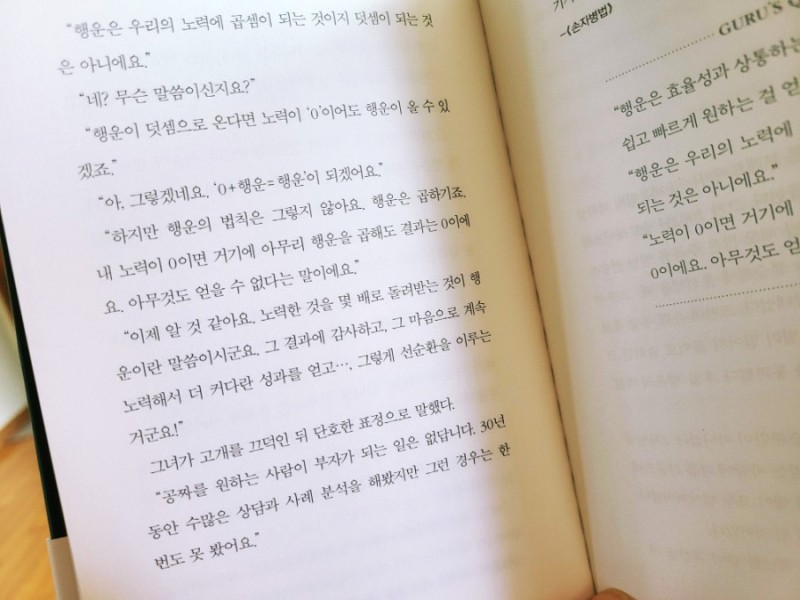 “행운은 우리의 노력에 곱셈이 되는 것이지 덧셈이 되는 것
은 아니에요.”
“네? 무슨 말씀이신지요?”
“행운이 덧셈으로 온다면 노력이 ‘0’이어도 행운이 올 수 있
겠죠.”
“아, 그렇겠네요. ‘0+행운=행운’이 되겠어요.”
“하지만 행운의 법칙은 그렇지 않아요. 행운은 곱하기죠.
내 노력이 0이면 거기에 아무리 행운을 곱해도 결과는 0이에
요. 아무것도 얻을 수 없다는 말이에요.”
“이제 알 것 같아요. 노력한 것을 몇 배로 돌려받는 것이 행
운이란 말씀이시군요. 그 결과에 감사하고, 그 마음으로 계속
노력해서 더 커다란 성과를 얻고…, 그렇게 선순환을 이루는
거군요!”
그녀가 고개를 끄덕인 뒤 단호한 표정으로 말했다.
“공짜를 원하는 사람이 부자가 되는 일은 없답니다. 30년
동안 수많은 상담과 사례 분석을 해봤지만 그런 경우는 한
번도 못 봤어요.”
-《손자병법》
GURU'S
“행운은 효율성과 상통하는
쉽고 빠르게 원하는 걸 얻
“행운은 우리의 노력에
되는 것은 아니에요.”
“노력이 0이면 거기에
0이에요. 아무것도 얻